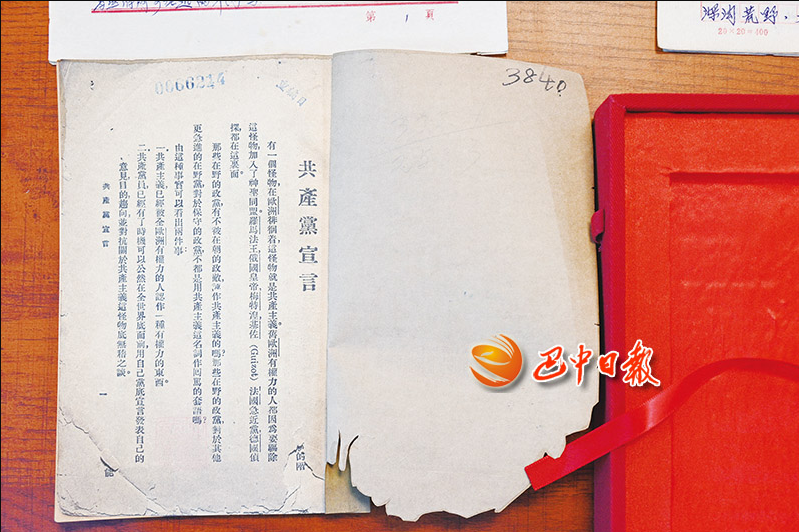 第 1 頁
荒野
20×20=400
3840
共產黨宣言
有一個怪物，在歐洲徘徊着，這怪物就是共產主義。舊歐洲有權力的人都因爲要驅除
這怪物，加入了神聖同盟。羅馬法王，俄國皇帝，梅特湼，基佐（Guizot），法國急近黨，德國偵
探，都在這裏面。
那些在野的政黨，有不被在朝的政敵，誣作共產主義的嗎？那些在野的政黨，對於其他
更急進的在野黨，對於保守的政黨，不都是用共產主義這名詞作回罵的套語嗎？
由這種事實可以看出兩件事：
一、共產主義已經被全歐洲有權力的人認作一種有權力的東西。
二、共產黨員已經有了時機可以公然在全世界底面前，用自己黨底宣言發表自己的
意見，目的，趨向，並對抗關於共產主義這怪物底無稽之談。
共產黨宣言
一
巴中日報